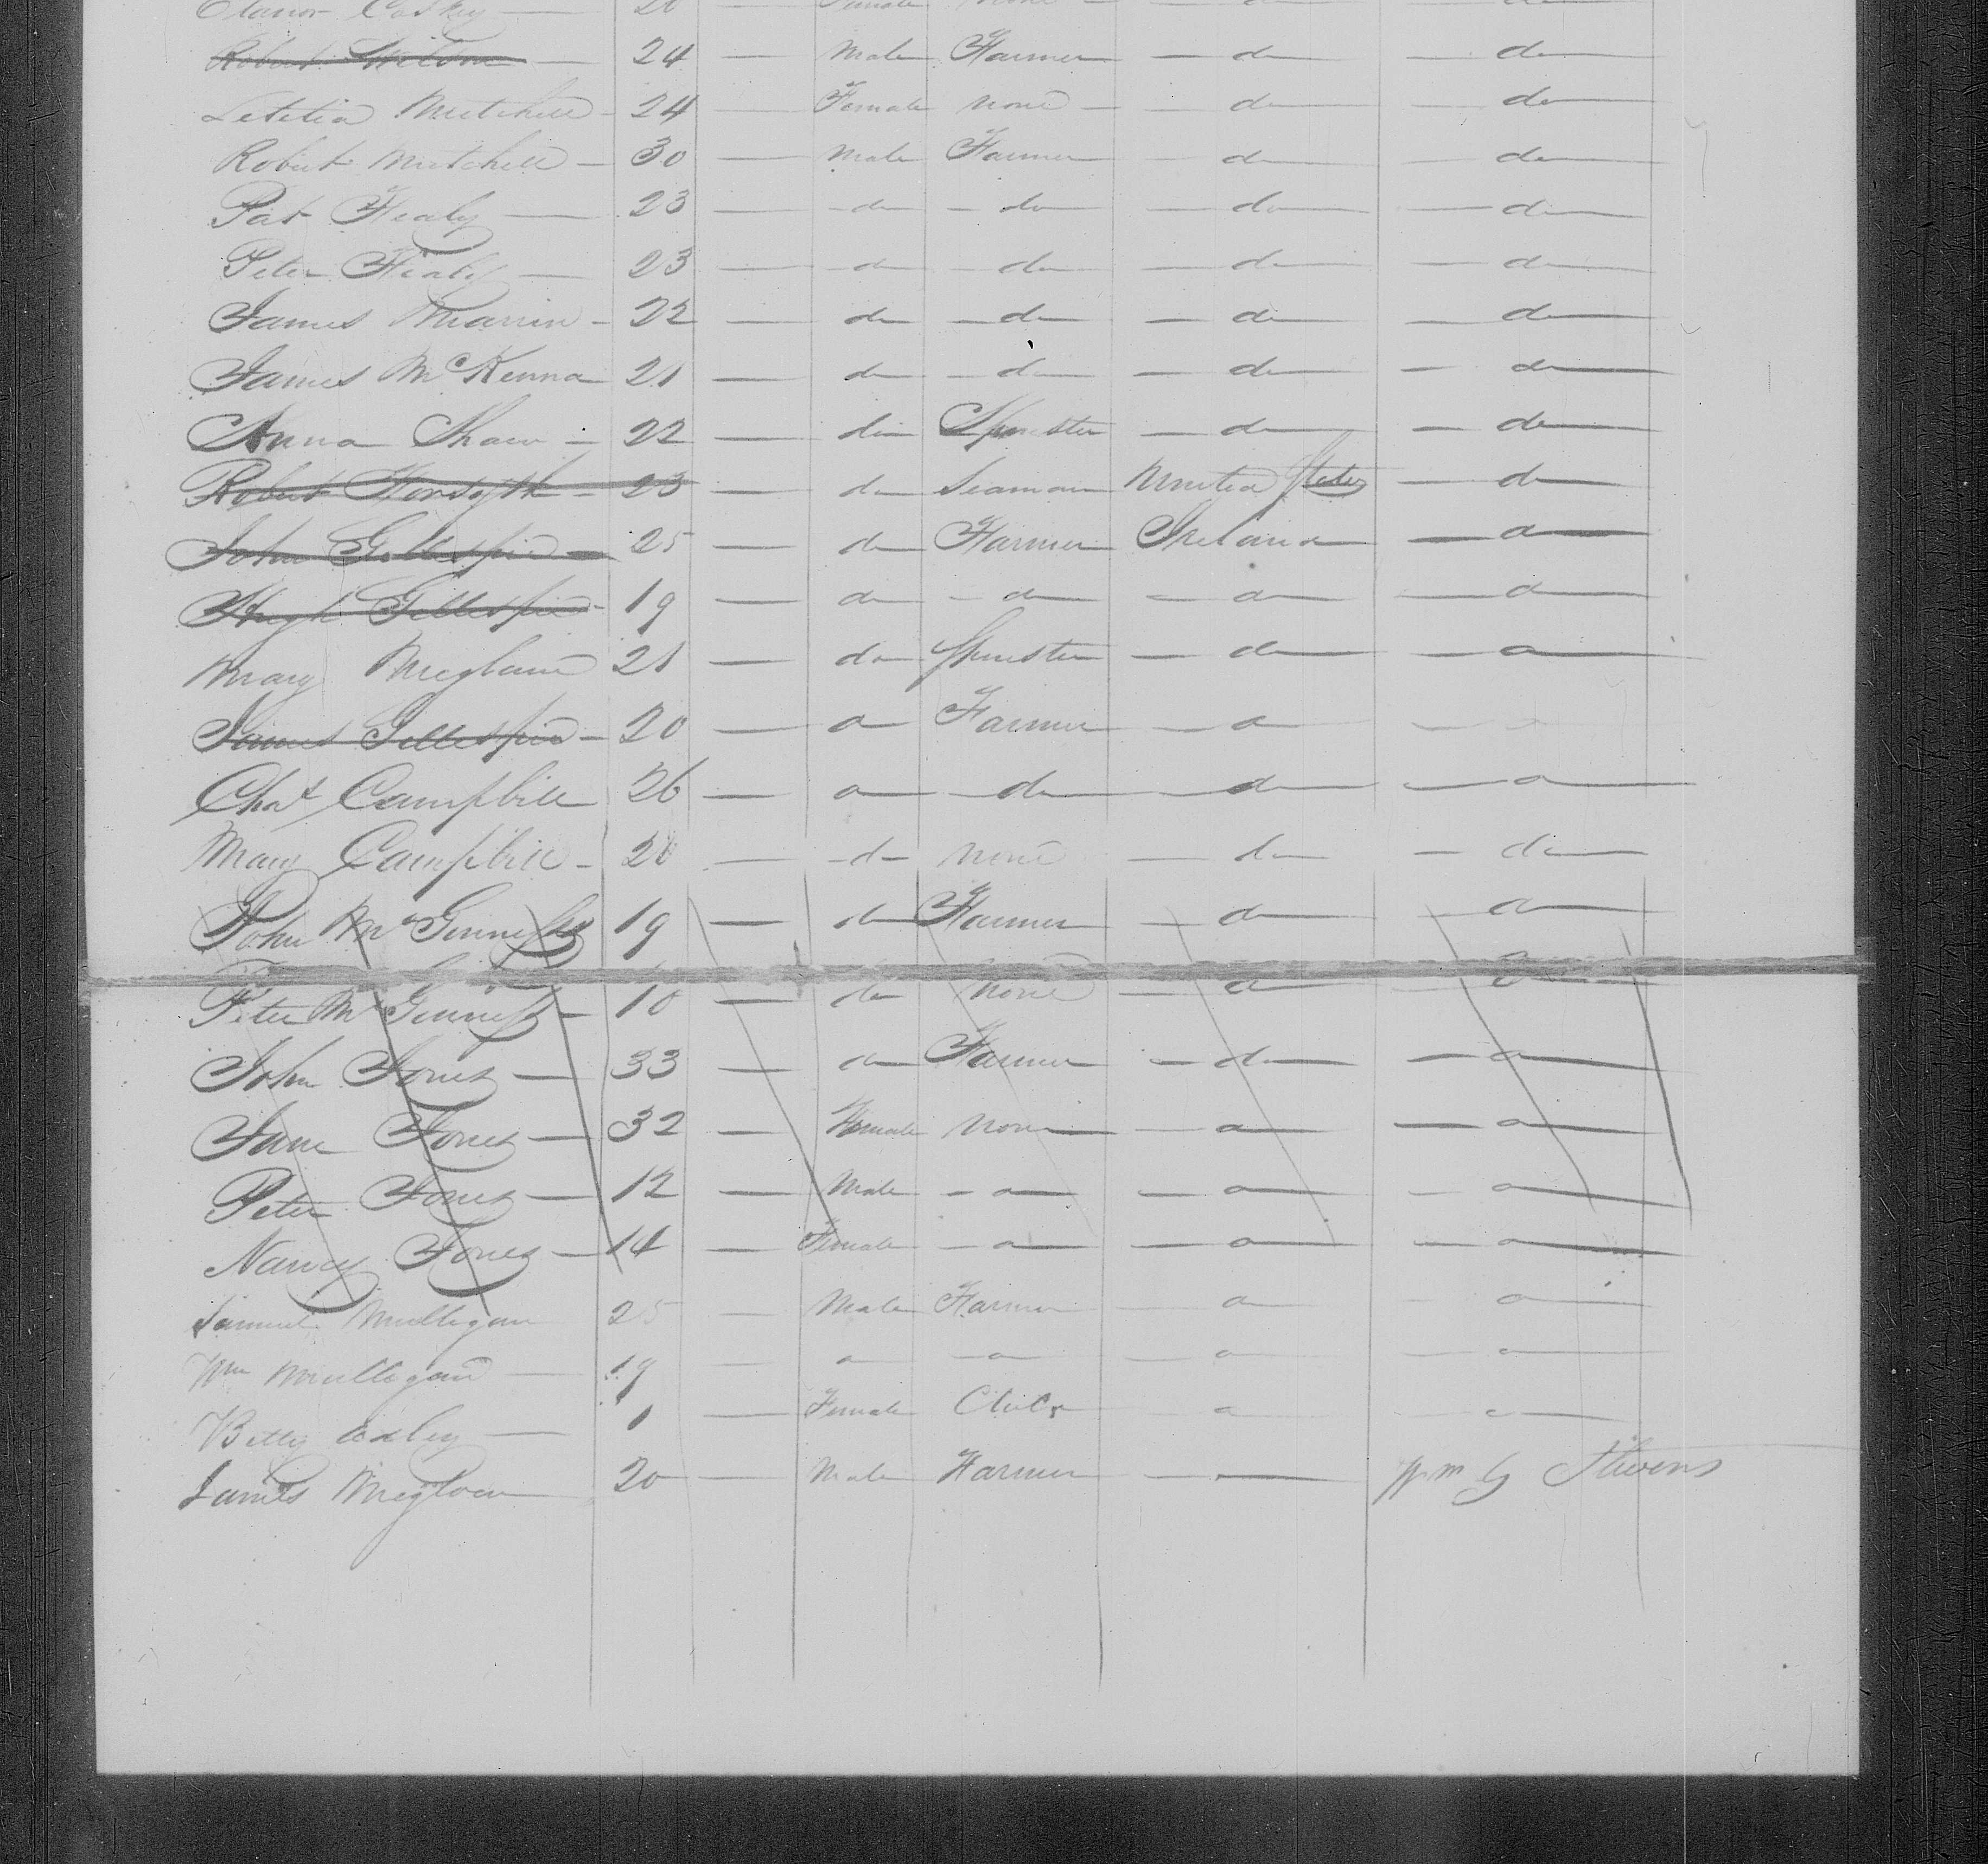 Elanor Caskey — 20 Female None — do — do
Robert Wilson — 24 — Male Farmer — do — do
Letitia Mitchell - 24 — Female None — do — do
Robert Mitchell — 30 — Male Farmer — do — do
Pat Healy — 23 — do — do — do — do
Peter Healy — 23 — do — do — do — do
James - 22 — do — do — do — do
James McKenna 21 — do — do — do — do
Anna Shaw - 22 — do Spinster — do — do
Robert Forsyth - 23 — do Seaman United States — do
John Gillespie — 25 — do Farmer Ireland — do
Hugh Gillespie - 19 — do — do — do — do
Mary 21 — do Spinster — do — do
James Gillespie - 20 — do Farmer — do
Chas Campbell 26 — do — do — do — do
Mary Campbell - 28 — do None — do — do
John McGinness 19 — do Farmer — do — do
Peter McGinness - 10 — do None — do — do
John Jones — 33 — do Farmer — do — do
Jane Jones — 32 — Female None — do — do
Peter Jones — 12 — Male — do — do — do
Nancy Jones — 14 — Female — do — do — do
Samuel Mulligan 25 — Male Farmer — do — do
Wm Mulligan — 19 — do — do — do — do
Betty — 1 — Female — do — do
James 20 — Male Farmer — Wm G Stevens